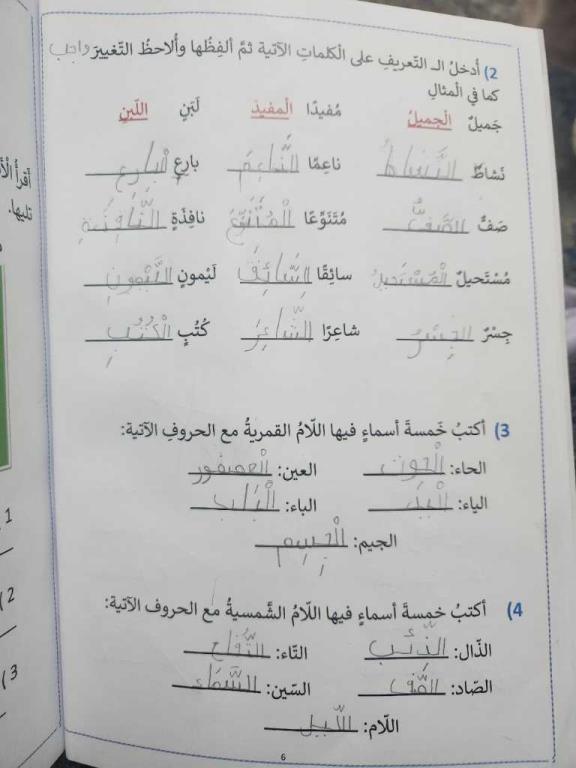 2) أدخلُ الـ التّعريفِ على الْكلماتِ الآتية ثمَّ ألفِظُها وأُلاحظُ التّغييرَ واجب
كما في الْمثالِ
جَميلٌ الْجميلُ مُفيدًا الْمفيدَ لَبَنٍ اللّبنِ
نَشاطٌ النَّشاطُ ناعِمًا النَّاعِمَ بارِعٍ البارِعِ
صَفٌّ الصَّفُّ مُتَنَوِّعًا الْمُتَنَوِّعَ نافِذَةٍ النَّافِذَةِ
مُسْتَحيلٌ الْمُسْتَحيلُ سائِقًا السَّائِقَ لَيْمونٍ اللَّيْمونِ
جِسْرٌ الجِسْرُ شاعِرًا الشَّاعِرَ كُتُبٍ الْكُتُبِ
3) أكتبُ خَمسةَ أسماءٍ فيها اللّامُ القمريةُ مع الحروفِ الآتية:
الحاء: الْحوت العين: الْعصفور
الياء: الْيد الباء: الْباب
الجيم: الْجِسِم
4) أكتبُ خمسةَ أسماءٍ فيها اللّامُ الشَّمسيةُ مع الحروف الآتية:
الذّال: الذّئب التّاء: التُّفاح
الصّاد: الصَّف السّين: السَّماء
اللّام: اللَّيل
6
أقرأُ الْأ
تليها.
1
2)
3)